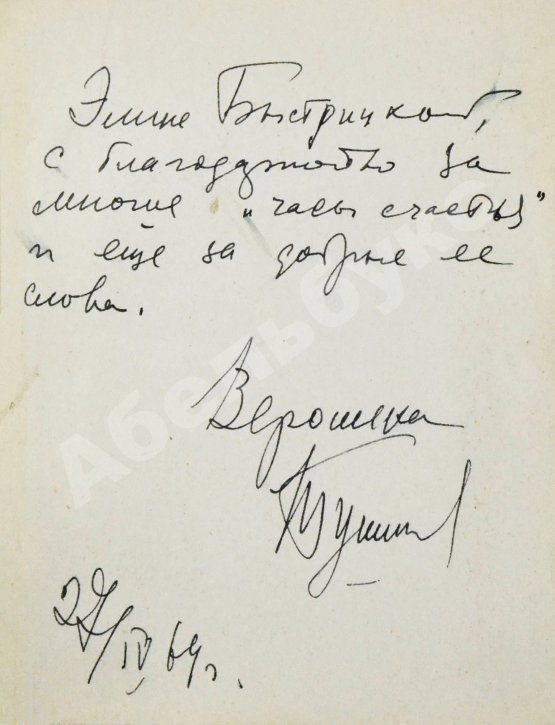 Элине Быстрицкой,
с благодарностью за
многие "часы счастья"
и ещё за добрые ее
слова.
Вероника
Тушнова
27/IV 64 г.
Абельбукс